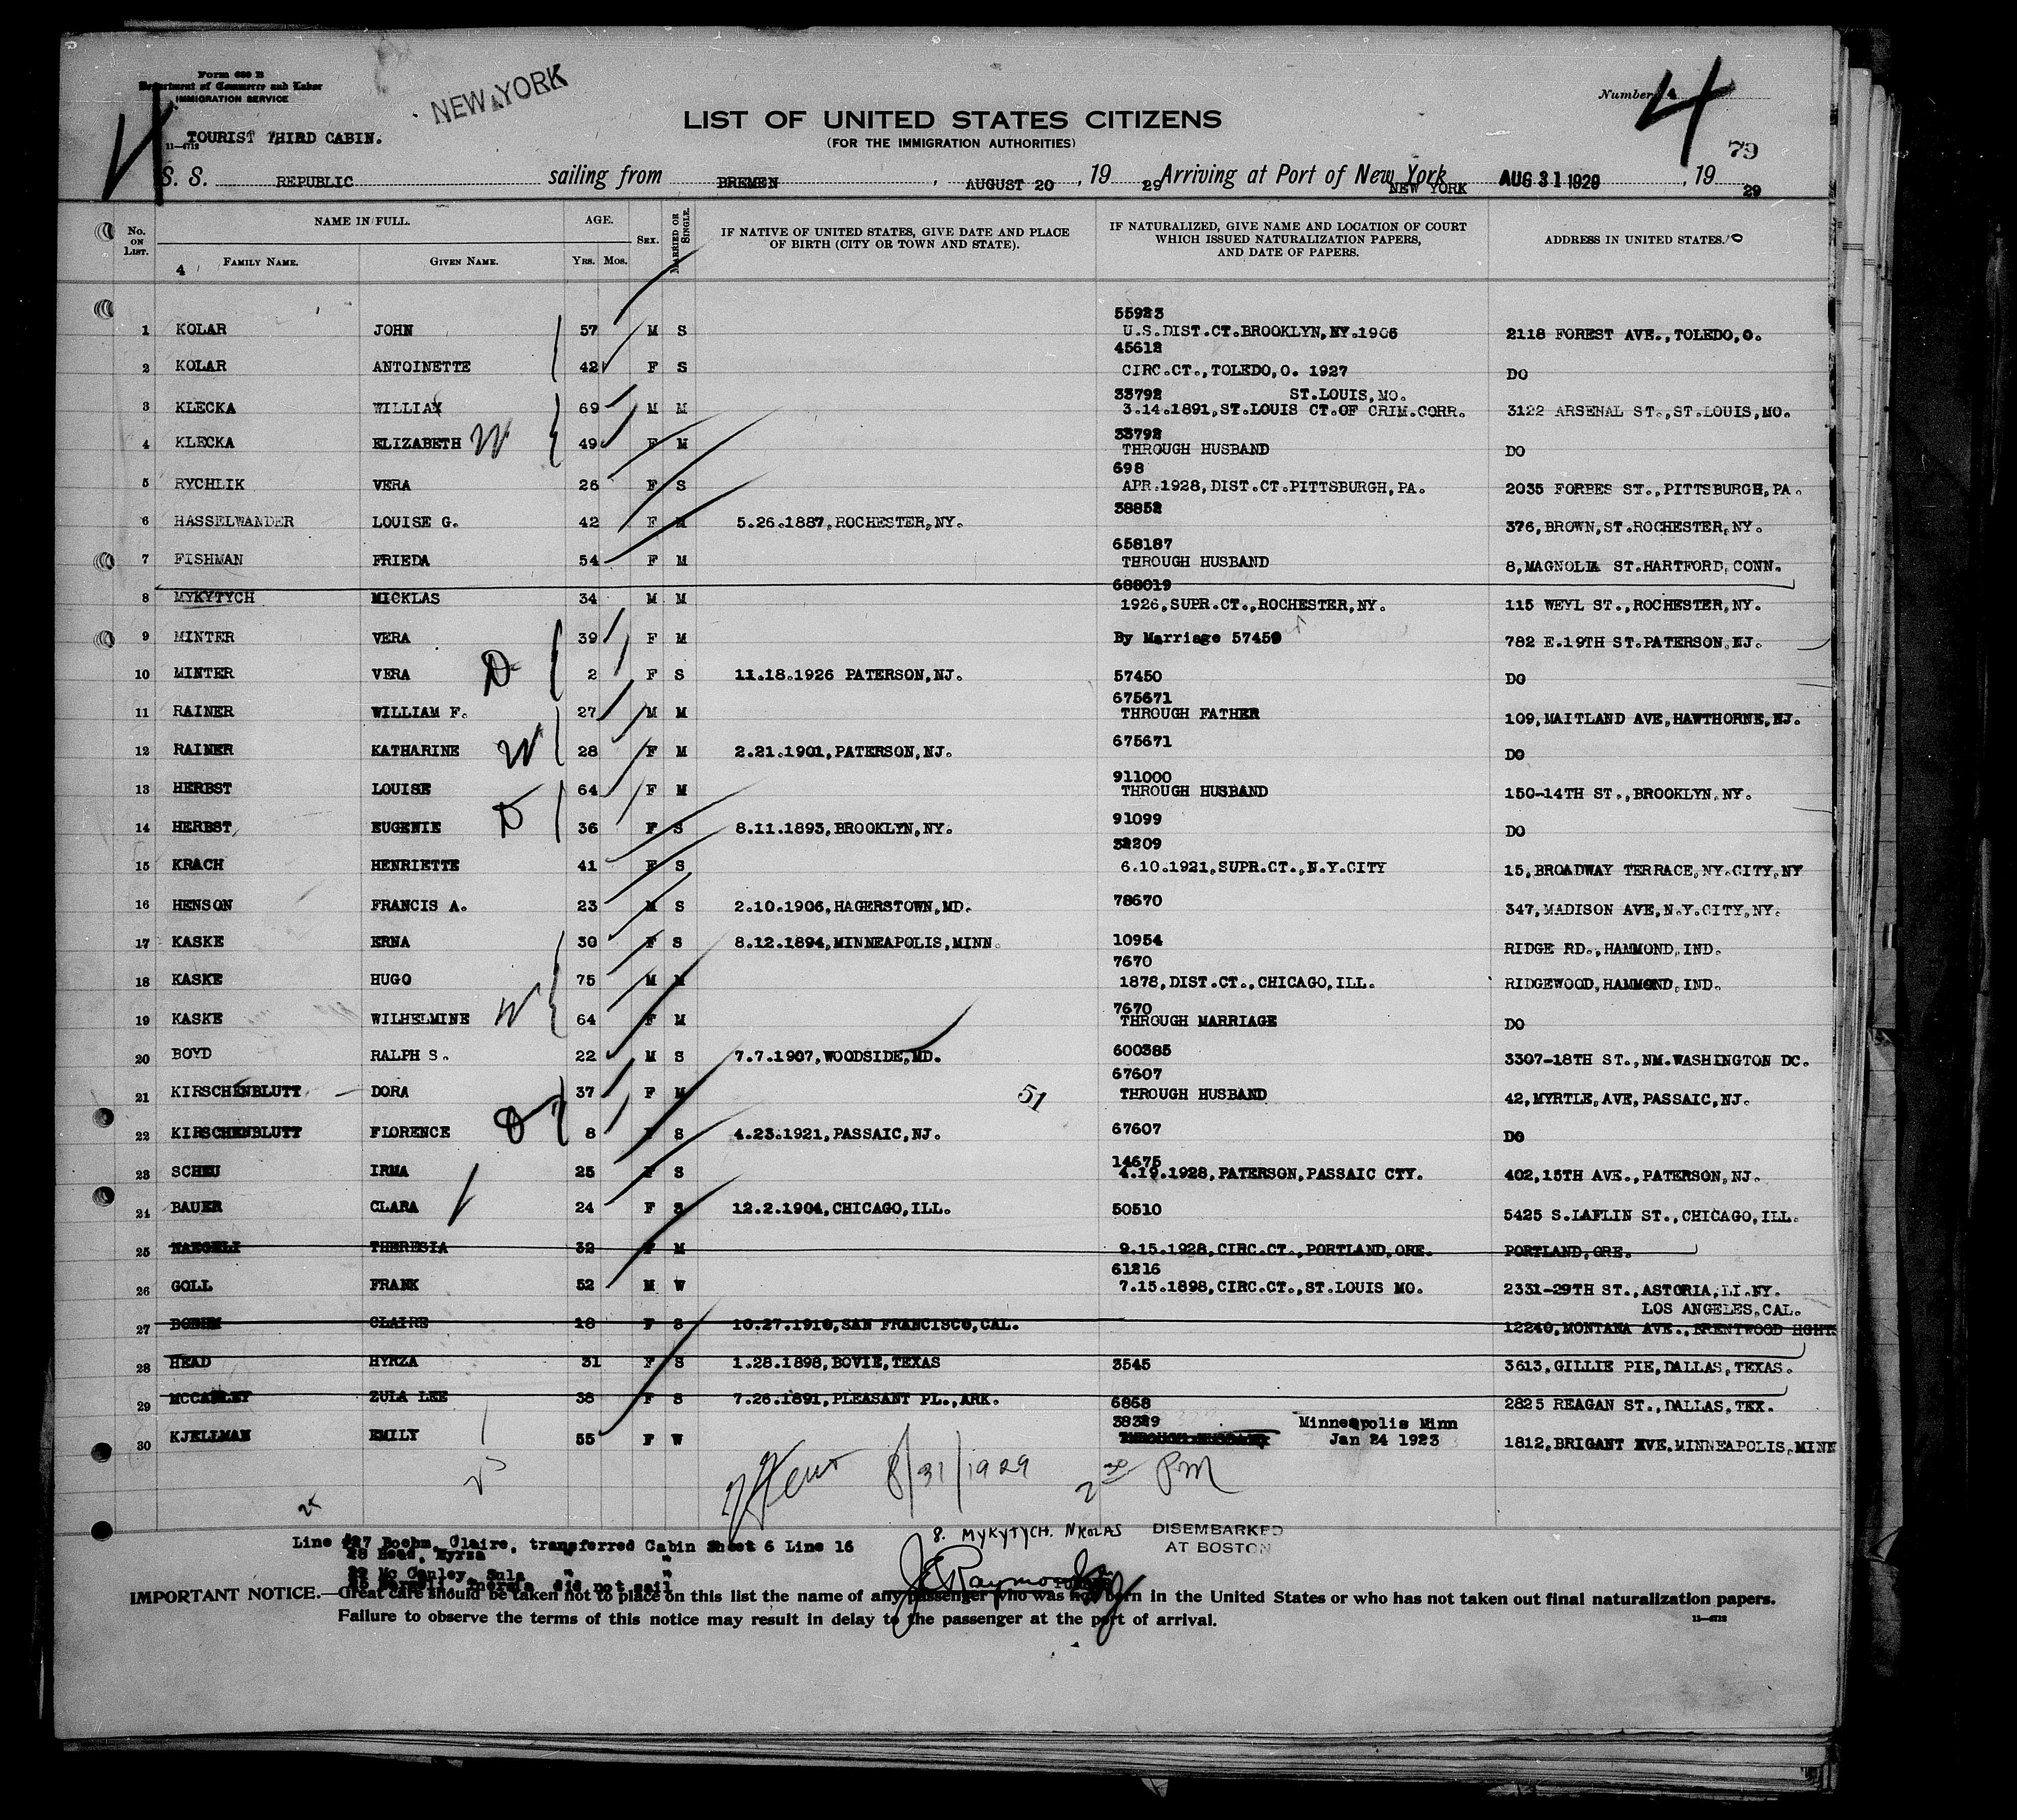 Form 630 B
Department of Commerce and Labor
IMMIGRATION SERVICE
NEW YORK
Number 4
4
79
LIST OF UNITED STATES CITIZENS
(FOR THE IMMIGRATION AUTHORITIES)
TOURIST THIRD CABIN.
11—4712
S. S. REPUBLIC sailing from BREMEN, AUGUST 20, 19 29 Arriving at Port of New York NEW YORK AUG 31 1929, 19 29
No. ON LIST. NAME IN FULL. AGE. SEX. MARRIED OR SINGLE. IF NATIVE OF UNITED STATES, GIVE DATE AND PLACE OF BIRTH (CITY OR TOWN AND STATE). IF NATURALIZED, GIVE NAME AND LOCATION OF COURT WHICH ISSUED NATURALIZATION PAPERS, AND DATE OF PAPERS. ADDRESS IN UNITED STATES.
4 FAMILY NAME. GIVEN NAME. YRS. MOS.
55923
1 KOLAR JOHN 57 M S U.S.DIST.CT.BROOKLYN,NY.1906 2118 FOREST AVE.,TOLEDO,O.
45612
2 KOLAR ANTOINETTE 42 F S CIRC.CT.,TOLEDO,O. 1927 DO
33792 ST.LOUIS,MO.
3 KLECKA WILLIAM 69 M M 3.14.1891,ST.LOUIS CT.OF CRIM.CORR. 3122 ARSENAL ST.,ST.LOUIS,MO.
33792
4 KLECKA ELIZABETH W 49 F M THROUGH HUSBAND DO
698
5 RYCHLIK VERA 26 F S APR.1928,DIST.CT.PITTSBURGH,PA. 2035 FORBES ST.,PITTSBURGH,PA.
6 HASSELWANDER LOUISE G. 42 F M 5.26.1887,ROCHESTER,NY. 38852 376,BROWN,ST.ROCHESTER,NY.
658187
7 FISHMAN FRIEDA 54 F M THROUGH HUSBAND 8,MAGNOLIA ST.HARTFORD,CONN.
688019
8 MYKYTYCH MICKLAS 34 M M 1926,SUPR.CT.,ROCHESTER,NY. 115 WEYL ST.,ROCHESTER,NY.
9 MINTER VERA 39 F M By Marriage 57450 782 E.19TH ST.PATERSON,NJ.
10 MINTER VERA D 2 F S 11.18.1926 PATERSON,NJ. 57450 DO
675671
11 RAINER WILLIAM F. 27 M M THROUGH FATHER 109,MAITLAND AVE,HAWTHORNE,NJ.
12 RAINER KATHARINE W 28 F M 2.21.1901,PATERSON,NJ. 675671 DO
911000
13 HERBST LOUISE 64 F M THROUGH HUSBAND 150-14TH ST.,BROOKLYN,NY.
14 HERBST, EUGENIE D 36 F S 8.11.1893,BROOKLYN,NY. 91099 DO
32209
15 KRACH HENRIETTE 41 F S 6.10.1921,SUPR.CT.,N.Y.CITY 15,BROADWAY TERRACE,NY.CITY,NY
16 HENSON FRANCIS A. 23 M S 2.10.1906,HAGERSTOWN,MD. 78670 347,MADISON AVE,N.Y.CITY,NY.
17 KASKE ERNA 30 F S 8.12.1894,MINNEAPOLIS,MINN. 10954 RIDGE RD.,HAMMOND,IND.
7670
18 KASKE HUGO 75 M M 1878,DIST.CT.,CHICAGO,ILL. RIDGEWOOD,HAMMOND,IND.
7670
19 KASKE WILHELMINE W 64 F M THROUGH MARRIAGE DO
20 BOYD RALPH S. 22 M S 7.7.1907,WOODSIDE,MD. 600385 3307-18TH ST.,NM.WASHINGTON DC.
67607
21 KIRSCHENBLUTT DORA 37 F M 51 THROUGH HUSBAND 42,MYRTLE,AVE,PASSAIC,NJ.
22 KIRSCHENBLUTT FLORENCE D 8 F S 4.23.1921,PASSAIC,NJ. 67607 DO
14675
23 SCHEU IRMA 25 F S 4.19.1928,PATERSON,PASSAIC CTY. 402,15TH AVE.,PATERSON,NJ.
24 BAUER CLARA 24 F S 12.2.1904,CHICAGO,ILL. 50510 5425 S.LAFLIN ST.,CHICAGO,ILL.
25 NAEGELI THERESIA 32 F M 9.15.1928,CIRC.CT.,PORTLAND,ORE. PORTLAND,ORE.
61216
26 GOLL FRANK 52 M W 7.15.1898,CIRC.CT.,ST.LOUIS MO. 2331-29TH ST.,ASTORIA,LI.NY.
LOS ANGELES,CAL.
27 BOEHM CLAIRE 18 F S 10.27.1910,SAN FRANCISCO,CAL. 12240,MONTANA AVE.,BRENTWOOD HGHTS
28 HEAD HYRZA 31 F S 1.28.1898,BOVIE,TEXAS 3545 3613,GILLIE PIE,DALLAS,TEXAS.
29 MCCANLEY ZULA LEE 38 F S 7.26.1891,PLEASANT PL.,ARK. 6868 2825 REAGAN ST.,DALLAS,TEX.
38329 Minneapolis Minn
30 KJELLMAN EMILY 55 F W THROUGH HUSBAND Jan 24 1923 1812,BRIGANT AVE,MINNEAPOLIS,MINN
8/31/1929 PM
8. MYKYTYCH. NKOLAS DISEMBARKED AT BOSTON
Line #27 Boehm, Claire, transferred Cabin Sheet 6 Line 16
28 Head, Hyrza "
29 Mc Canley, Sula " "
did not sail
IMPORTANT NOTICE.—Great care should be taken not to place on this list the name of any passenger who was not born in the United States or who has not taken out final naturalization papers.
Failure to observe the terms of this notice may result in delay to the passenger at the port of arrival.
11—4712